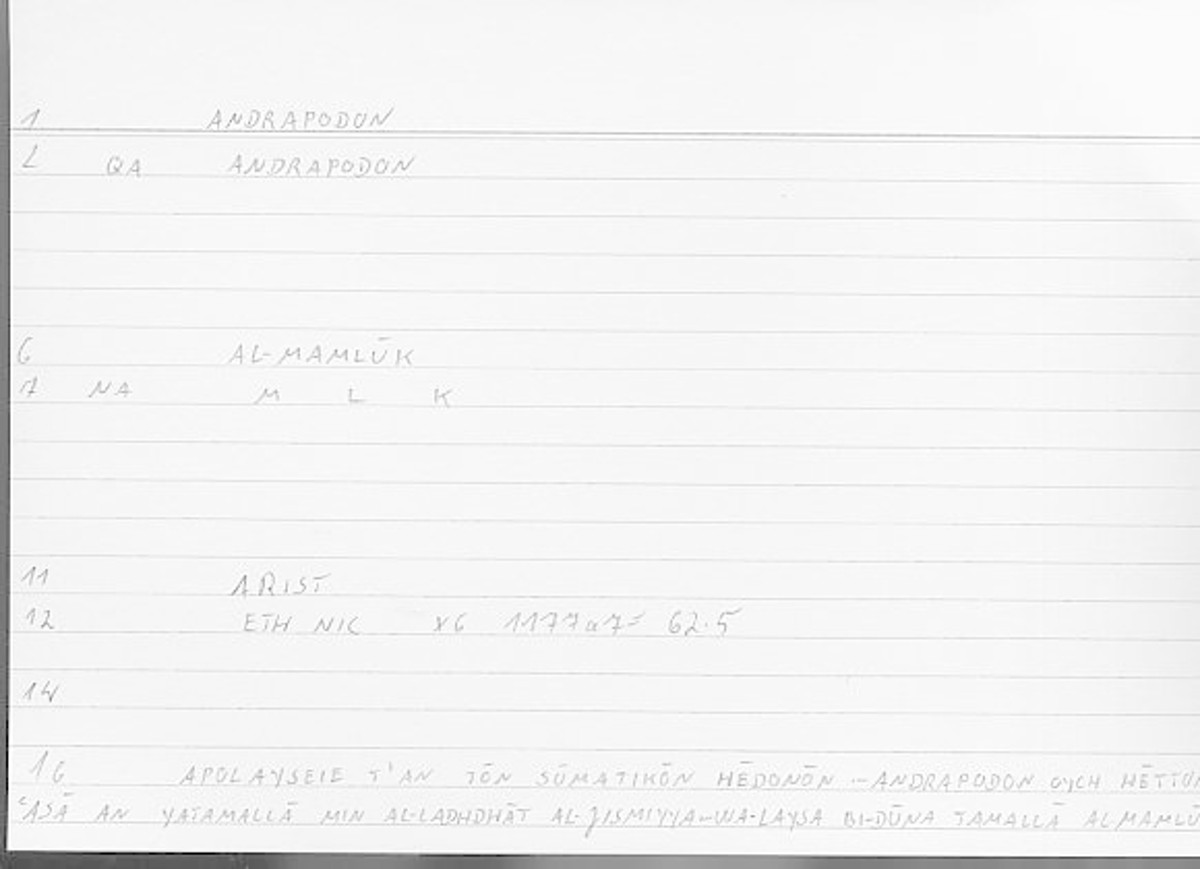 1 ANDRAPODON
2 QA ANDRAPODON
6 AL-MAMLŪK
7 NA M L K
11 ARIST
12 ETH NIC X6 1177a7= 62.5
14
16 APOLAYSEIE T'AN TŌN SŌMATIKŌN HĒDONŌN -- ANDRAPODON OYCH HĒTTON
ʿASĀ AN YATAMALLĀ MIN AL-LADHDHĀT AL-JISMIYYA-WA-LAYSA BI-DŪNA TAMALLĀ AL MAMLŪ